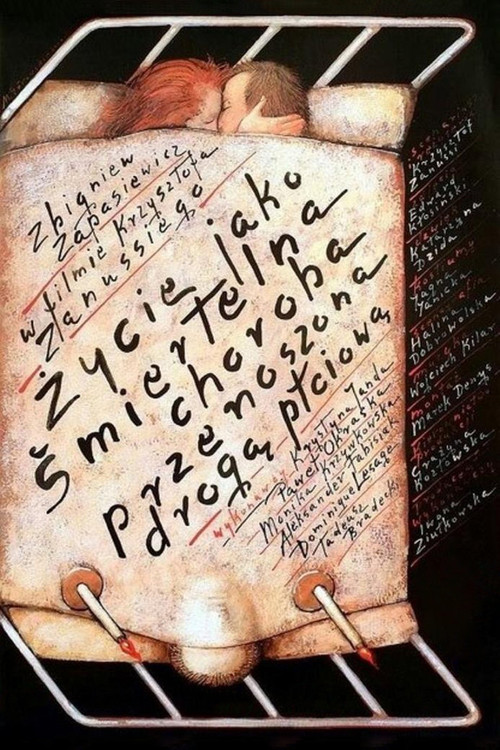 Zbigniew
Zapasiewicz
w filmie Krzysztofa
Zanussiego
Życie jako
śmiertelna
choroba
przenoszona
drogą płciową
wykonawcy Krystyna Janda
Paweł Okraska
Monika Krzywkowska
Aleksander Fabisiak
Dominique Lesage
Tadeusz
Bradecki
Krzysztof
Zanussi
Edward
Kłosiński
Katarzyna
Dzida
kostiumy
Jagna
Janicka
Halina
Dobrowolska
Wojciech Kilar
Marek Denys
Grażyna
Kozłowska
Iwona
Ziułkowska